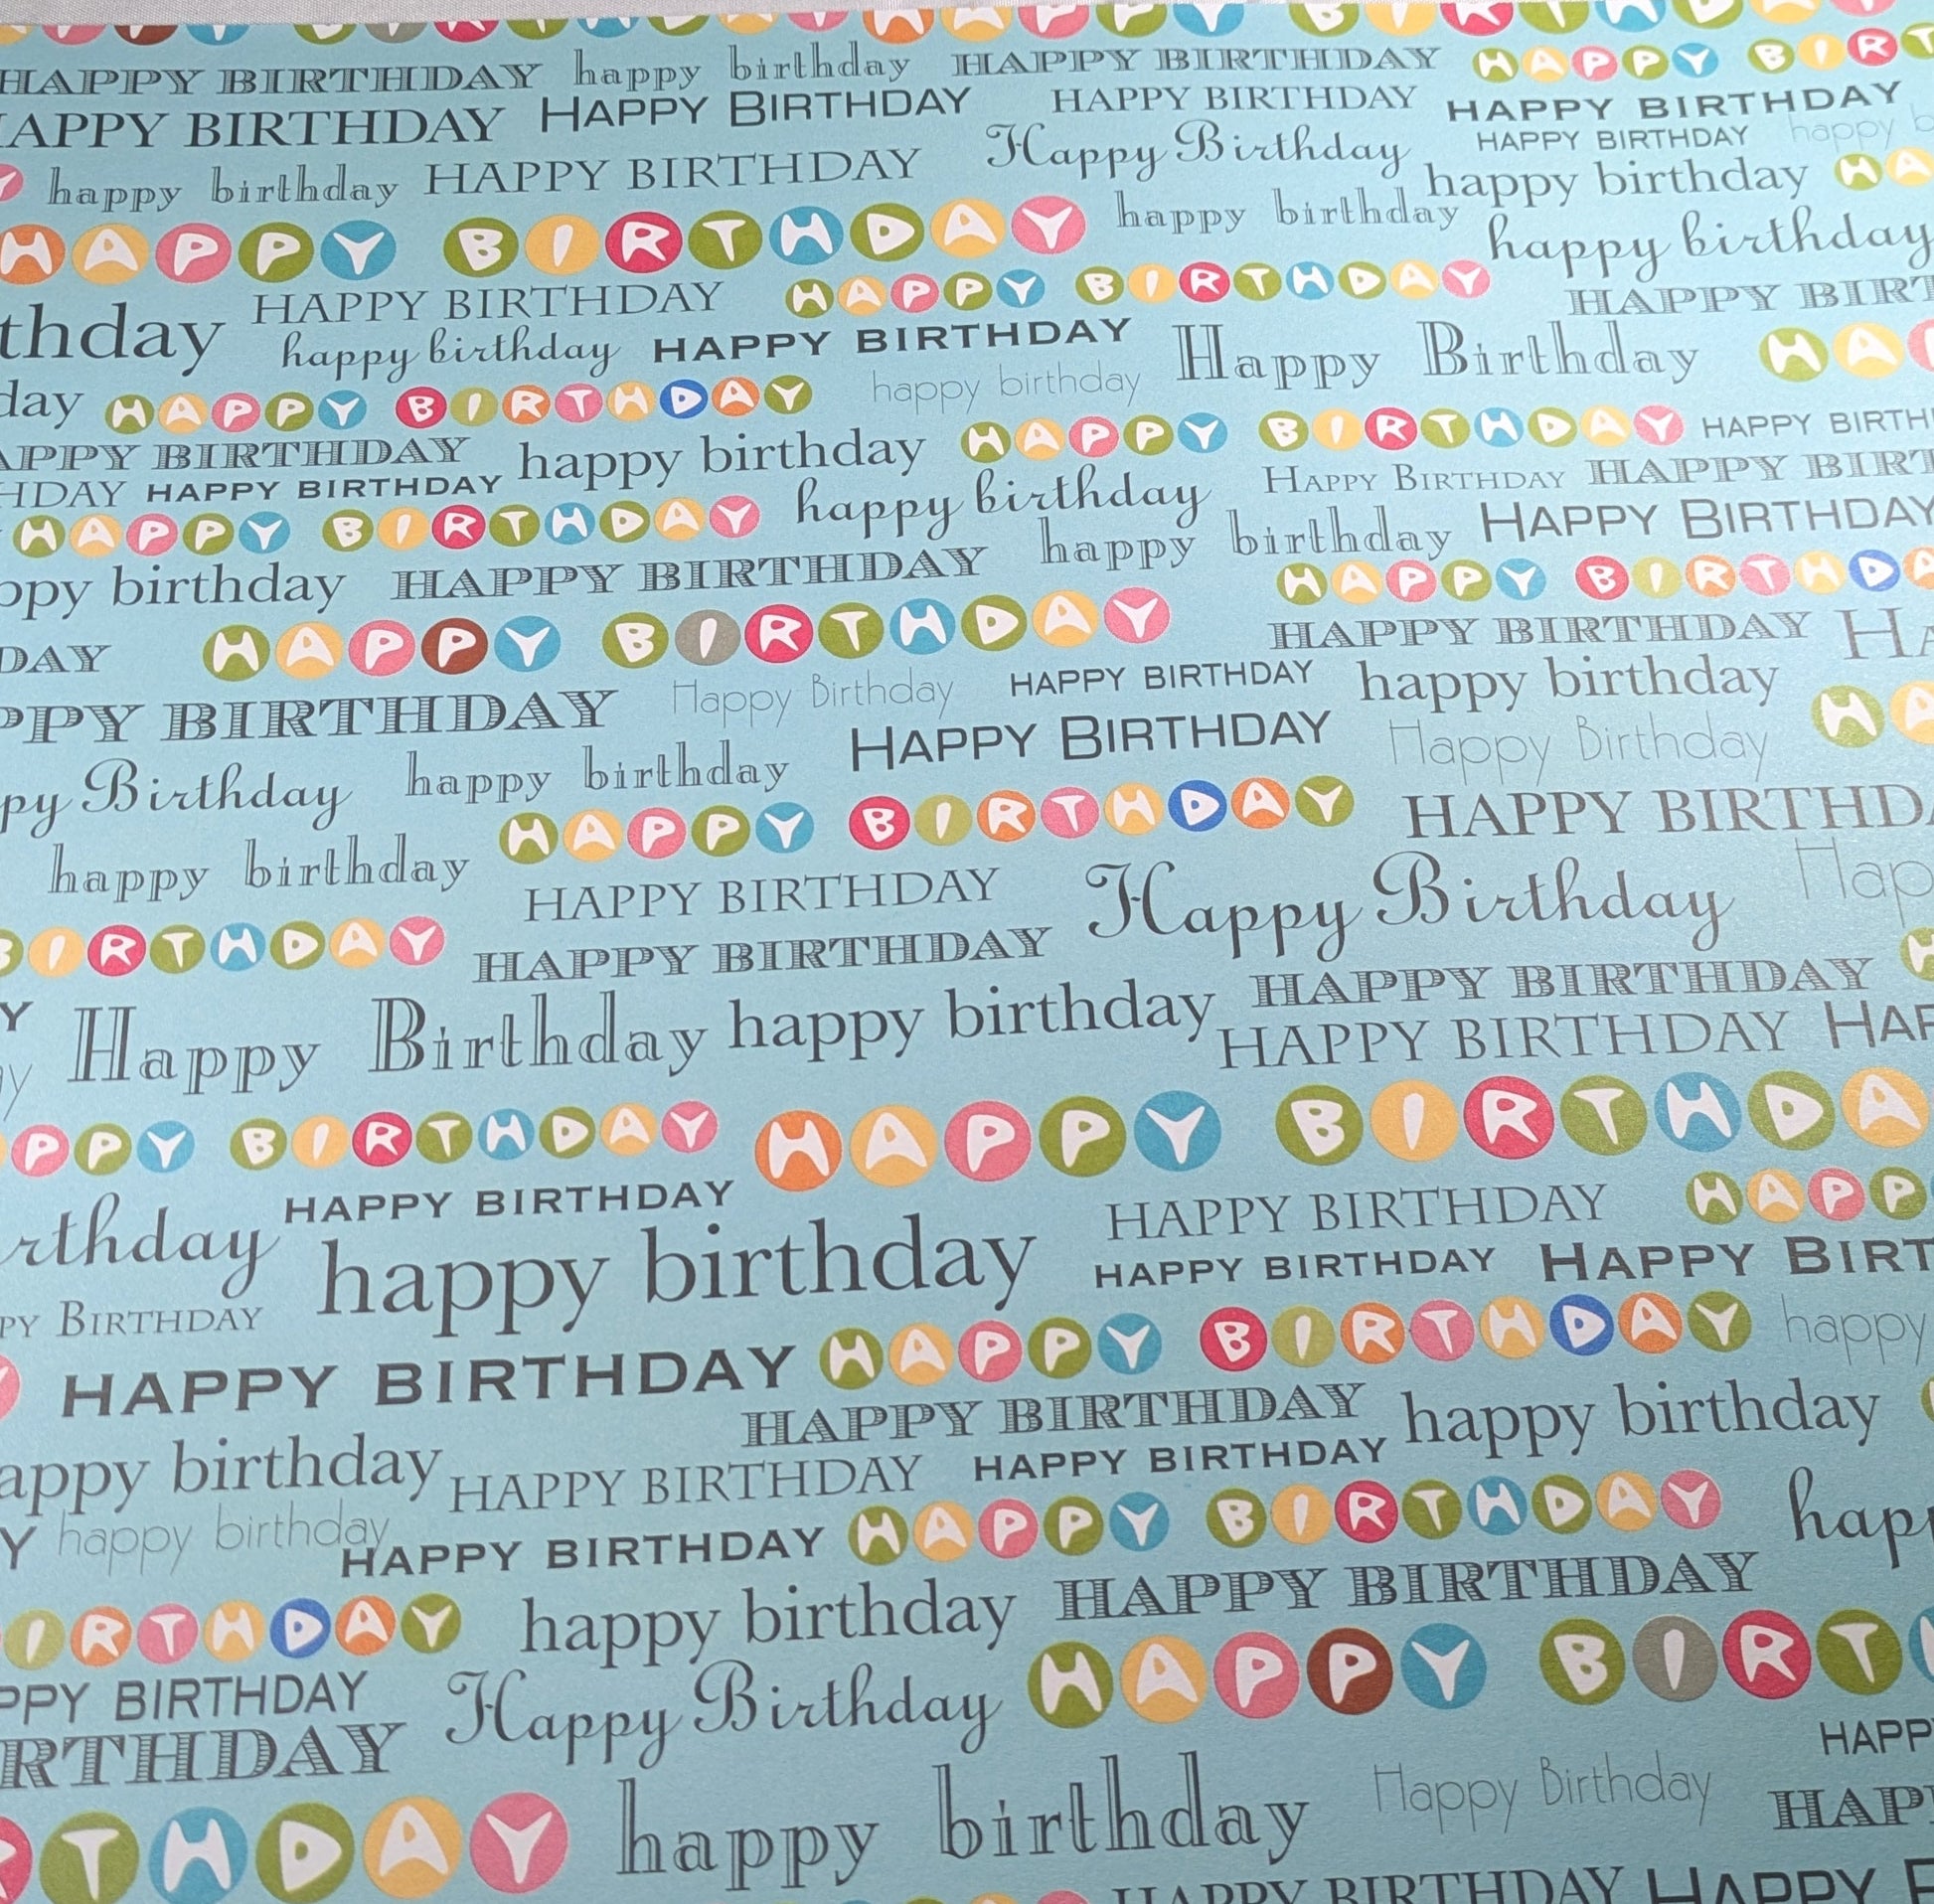 HAPPY BIRTHDAY happy birthday HAPPY BIRTHDAY HAPPY BIRT
APPY BIRTHDAY HAPPY BIRTHDAY HAPPY BIRTHDAY HAPPY BIRTHDAY
Y happy birthday HAPPY BIRTHDAY Happy Birthday HAPPY BIRTHDAY happy b
happy birthday HA
HAPPY BIRTHDAY happy birthday happy birthday
thday HAPPY BIRTHDAY HAPPY BIRTHDAY HAPPY BIRT
happy birthday HAPPY BIRTHDAY Happy Birthday HAP
day HAPPY BIRTHDAY happy birthday
APPY BIRTHDAY happy birthday HAPPY BIRTHDAY HAPPY BIRTH
HDAY HAPPY BIRTHDAY Happy Birthday HAPPY BIRT
HAPPY BIRTHDAY happy birthday happy birthday Happy Birthday
ppy birthday HAPPY BIRTHDAY HAPPY BIRTHDA
DAY HAPPY BIRTHDAY HAPPY BIRTHDAY HA
PPY BIRTHDAY Happy Birthday HAPPY BIRTHDAY happy birthday HA
py Birthday happy birthday Happy Birthday Happy Birthday
happy birthday HAPPY BIRTHDAY HAPPY BIRTHDA
HAPPY BIRTHDAY Happy Birthday Hap
BIRTHDAY HAPPY BIRTHDAY H
Y Happy Birthday happy birthday HAPPY BIRTHDAY
y HAPPY BIRTHDAY HAP
PPY BIRTHDAY HAPPY BIRTHDA
rthday HAPPY BIRTHDAY HAPPY BIRTHDAY HAPP
py Birthday happy birthday HAPPY BIRTHDAY Happy Birt
Y HAPPY BIRTHDAY HAPPY BIRTHDAY happy
HAPPY BIRTHDAY happy birthday
appy birthday HAPPY BIRTHDAY HAPPY BIRTHDAY
Y happy birthday HAPPY BIRTHDAY HAPPY BIRTHDAY happ
IRTHDAY happy birthday HAPPY BIRTHDAY
PPY BIRTHDAY Happy Birthday HAPPY BIRTH
RTHDAY HAPP
RTHDAY happy birthday Happy Birthday HAPP
HAPPY BIRTHDAY HAPPY B